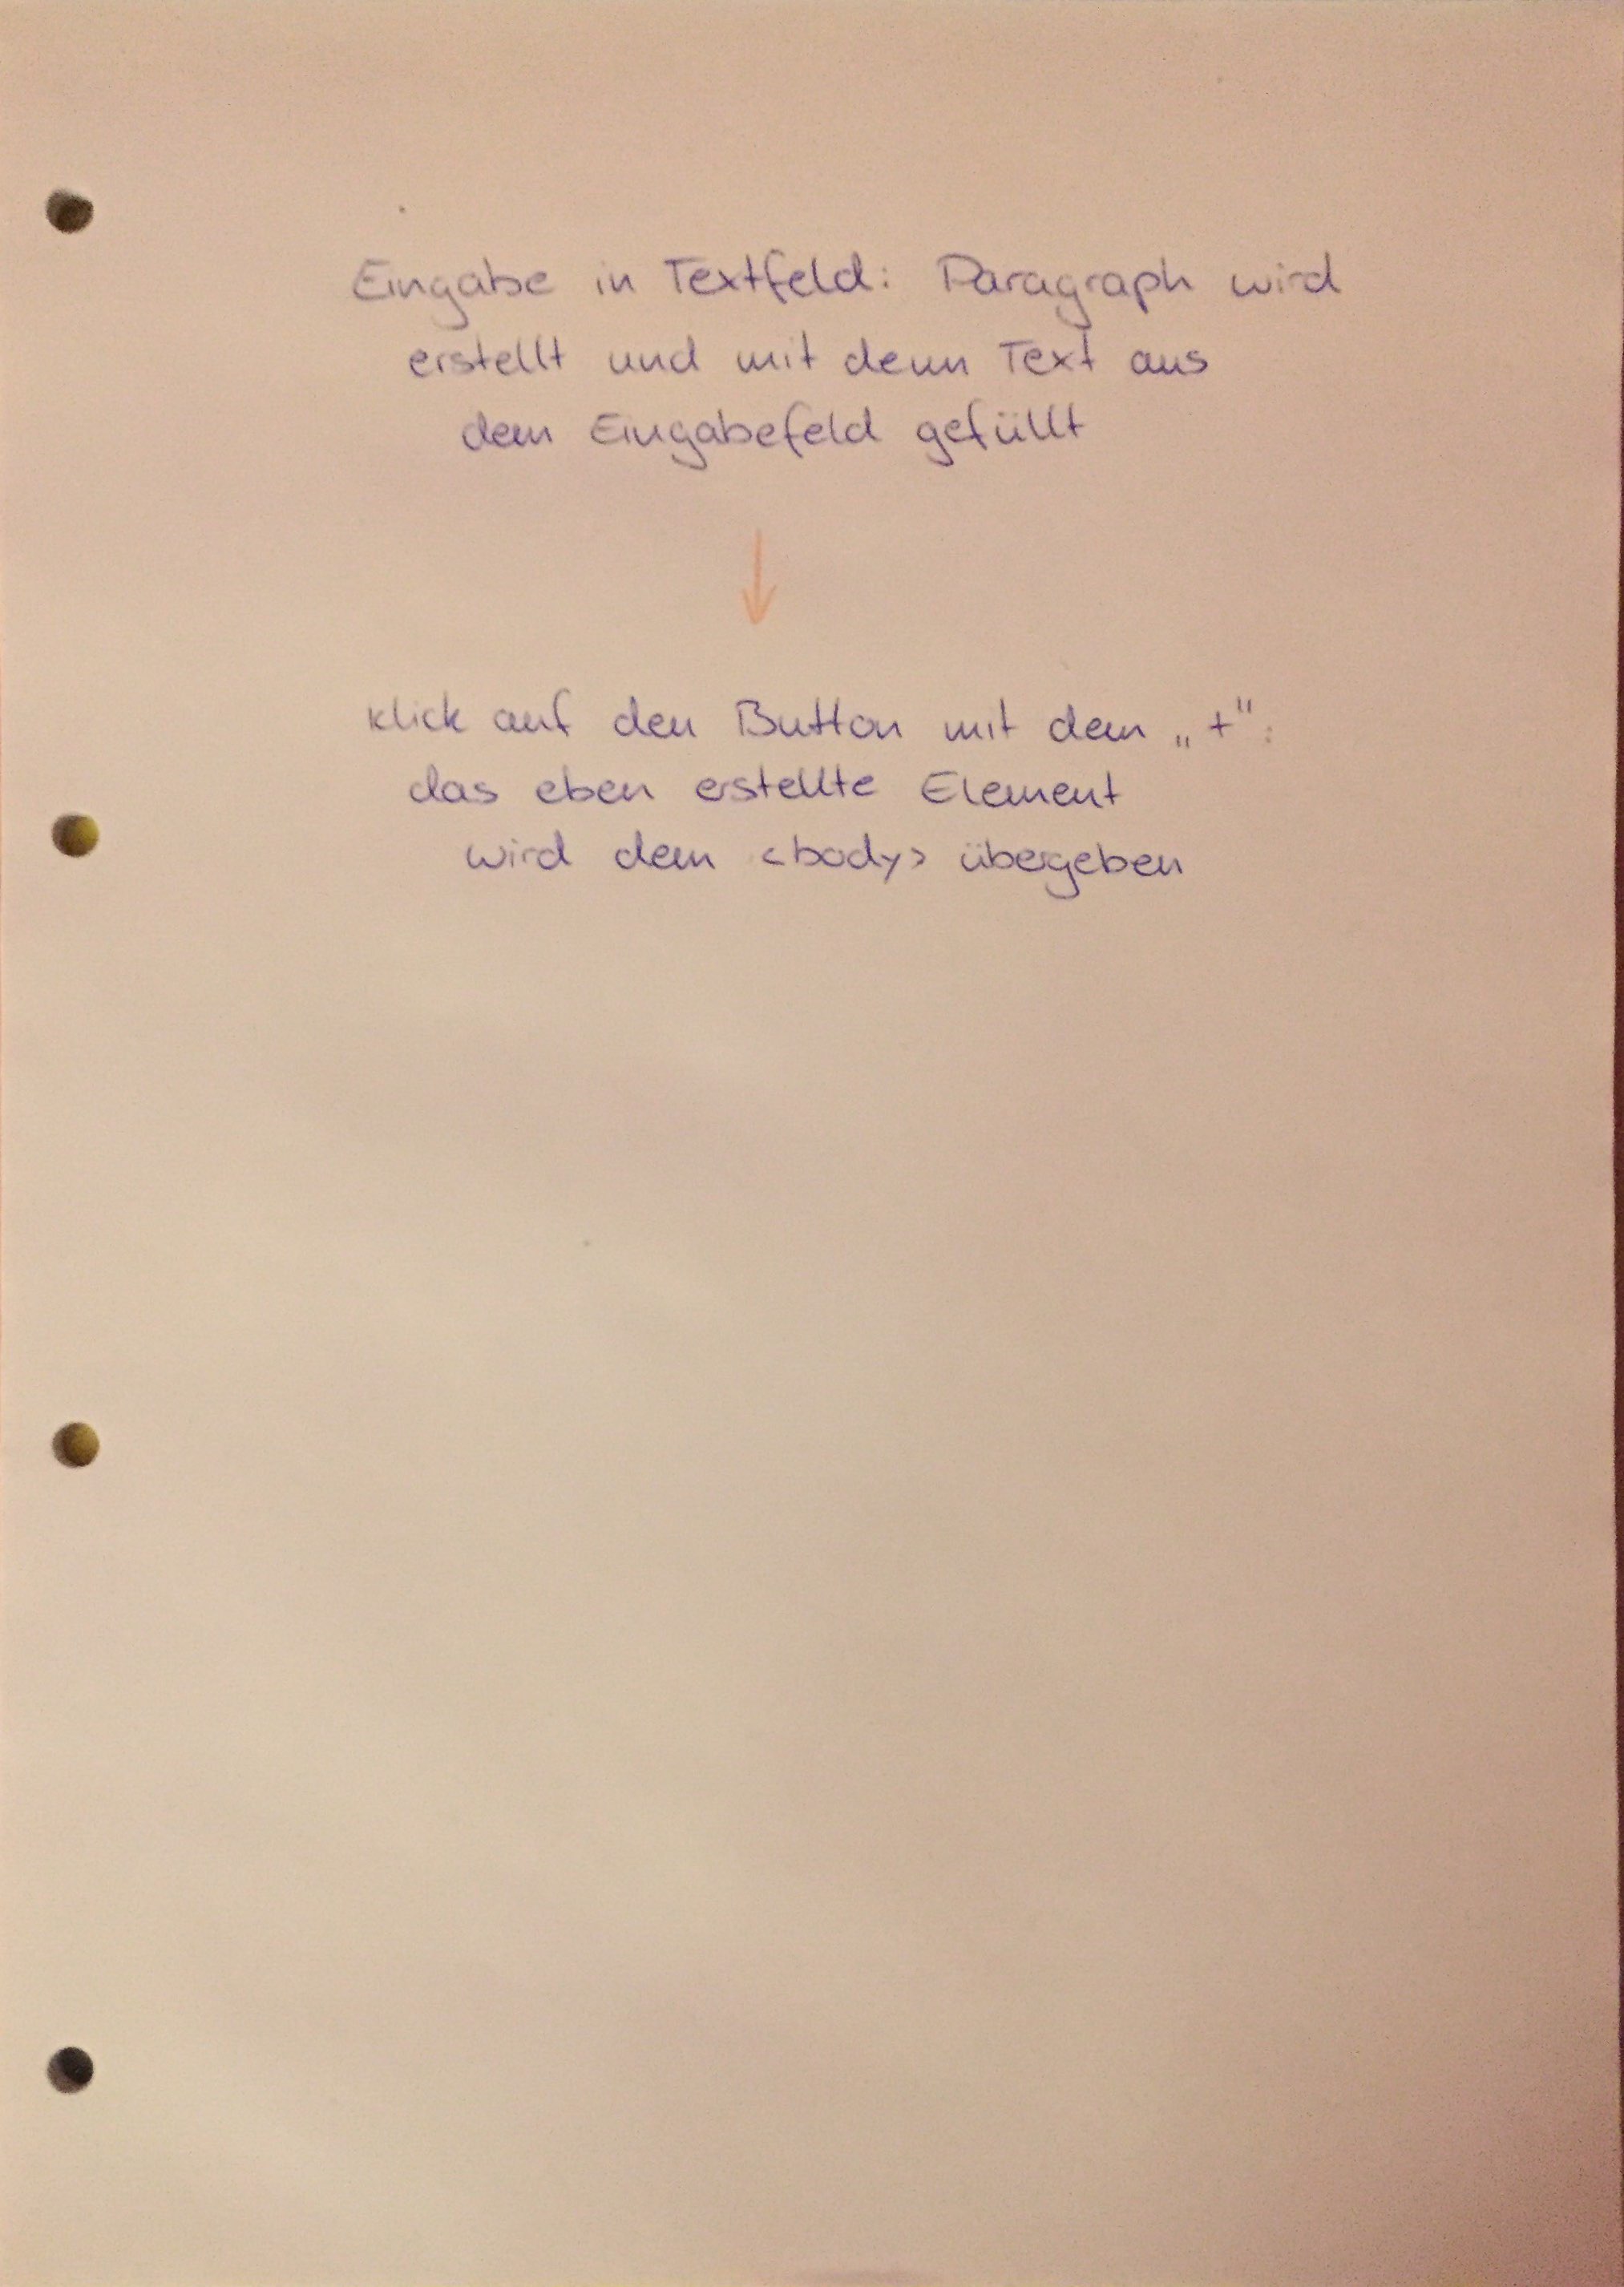 Eingabe in Textfeld: Paragraph wird
erstellt und mit dem Text aus
dem Eingabefeld gefüllt
↓
klick auf den Button mit dem „+“:
das eben erstellte Element
wird dem <body> übergeben